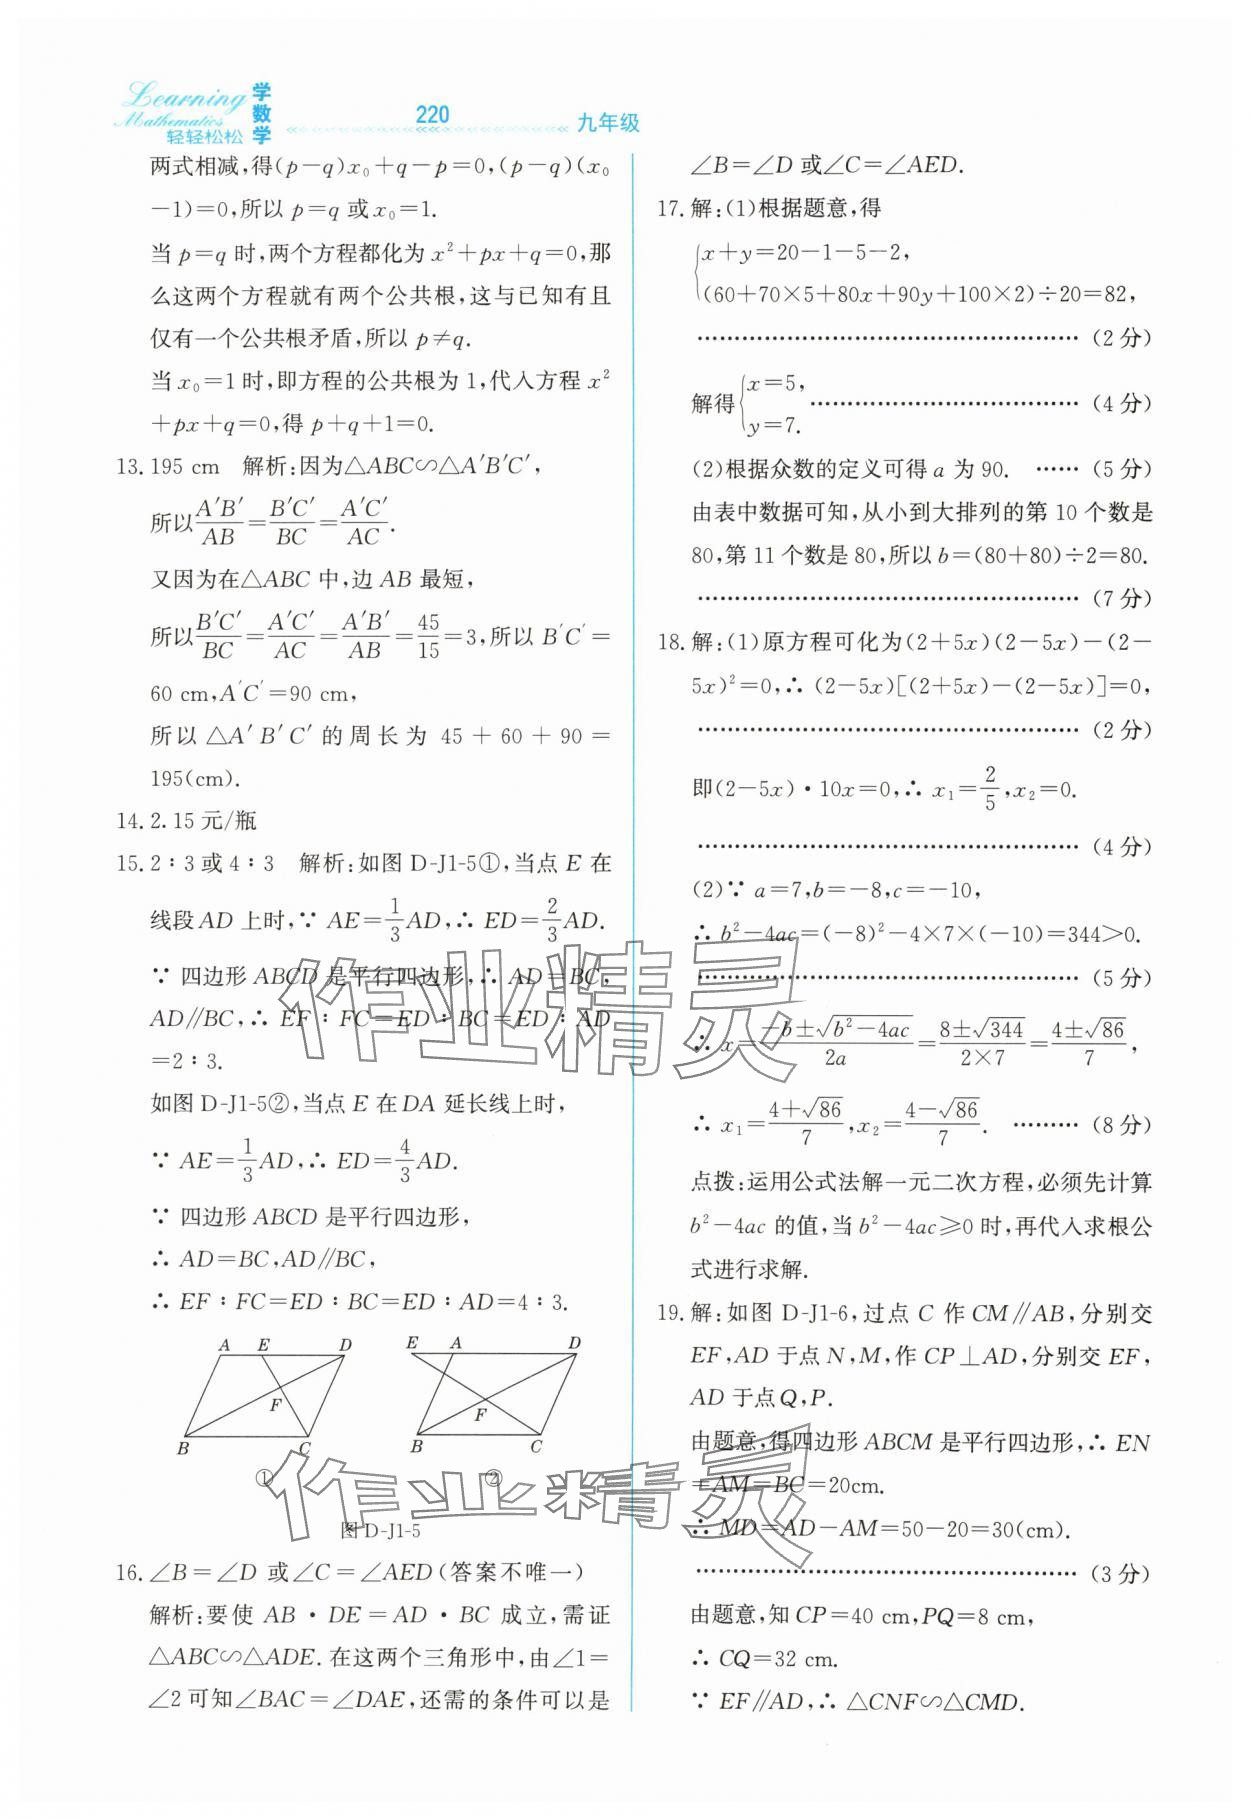 Learning
Mathematics
轻轻松松
学数学
220
九年级
两式相减,得(p-q)x₀+q-p=0,(p-q)(x₀
-1)=0,所以 p=q 或x₀=1.
当 p=q 时,两个方程都化为 x²+px+q=0,那
么这两个方程就有两个公共根,这与已知有且
仅有一个公共根矛盾,所以 p≠q.
当 x₀=1 时,即方程的公共根为 1,代入方程 x²
+px+q=0,得 p+q+1=0.
13. 195 cm 解析:因为△ABC∽△A′B′C′,
所以A′B′/AB=B′C′/BC=A′C′/AC.
又因为在△ABC 中,边 AB 最短,
所以B′C′/BC=A′C′/AC=A′B′/AB=45/15=3,所以 B′C′=
60 cm,A′C′=90 cm,
所以 △A′B′C′ 的周长为 45+60+90=
195(cm).
14. 2.15 元/瓶
15. 2∶3 或 4∶3 解析:如图 D-J1-5①,当点 E 在
线段 AD 上时,∵ AE=1/3AD,∴ ED=2/3AD.
∵ 四边形 ABCD 是平行四边形,∴ AD=BC,
AD∥BC,∴ EF∶FC=ED∶BC=ED∶AD
=2∶3.
如图 D-J1-5②,当点 E 在 DA 延长线上时,
∵ AE=1/3AD,∴ ED=4/3AD.
∵ 四边形 ABCD 是平行四边形,
∴ AD=BC,AD∥BC,
∴ EF∶FC=ED∶BC=ED∶AD=4∶3.
A E D F B C
①
E A D F B C
②
图 D-J1-5
16. ∠B=∠D 或∠C=∠AED(答案不唯一)
解析:要使 AB·DE=AD·BC 成立,需证
△ABC∽△ADE.在这两个三角形中,由∠1=
∠2 可知∠BAC=∠DAE,还需的条件可以是
∠B=∠D 或∠C=∠AED.
17. 解:(1)根据题意,得
{x+y=20-1-5-2,
(60+70×5+80x+90y+100×2)÷20=82,
…… (2 分)
解得{x=5, y=7. …… (4 分)
(2)根据众数的定义可得 a 为 90. …… (5 分)
由表中数据可知,从小到大排列的第 10 个数是
80,第 11 个数是 80,所以 b=(80+80)÷2=80.
…… (7 分)
18. 解:(1)原方程可化为(2+5x)(2-5x)-(2-
5x)²=0,∴ (2-5x)[(2+5x)-(2-5x)]=0,
…… (2 分)
即(2-5x)·10x=0,∴ x₁=2/5,x₂=0.
…… (4 分)
(2)∵ a=7,b=-8,c=-10,
∴ b²-4ac=(-8)²-4×7×(-10)=344>0.
…… (5 分)
∴ x=(-b±√(b²-4ac))/2a=(8±√344)/(2×7)=(4±√86)/7,
∴ x₁=(4+√86)/7,x₂=(4-√86)/7. …… (8 分)
点拨:运用公式法解一元二次方程,必须先计算
b²-4ac 的值,当 b²-4ac≥0 时,再代入求根公
式进行求解.
19. 解:如图 D-J1-6,过点 C 作 CM∥AB,分别交
EF,AD 于点 N,M,作 CP⊥AD,分别交 EF,
AD 于点 Q,P.
由题意,得四边形 ABCM 是平行四边形,∴ EN
=AM=BC=20cm.
∴ MD=AD-AM=50-20=30(cm).
…… (3 分)
由题意,知 CP=40 cm,PQ=8 cm,
∴ CQ=32 cm.
∵ EF∥AD,∴ △CNF∽△CMD.
作业精灵
作业精灵